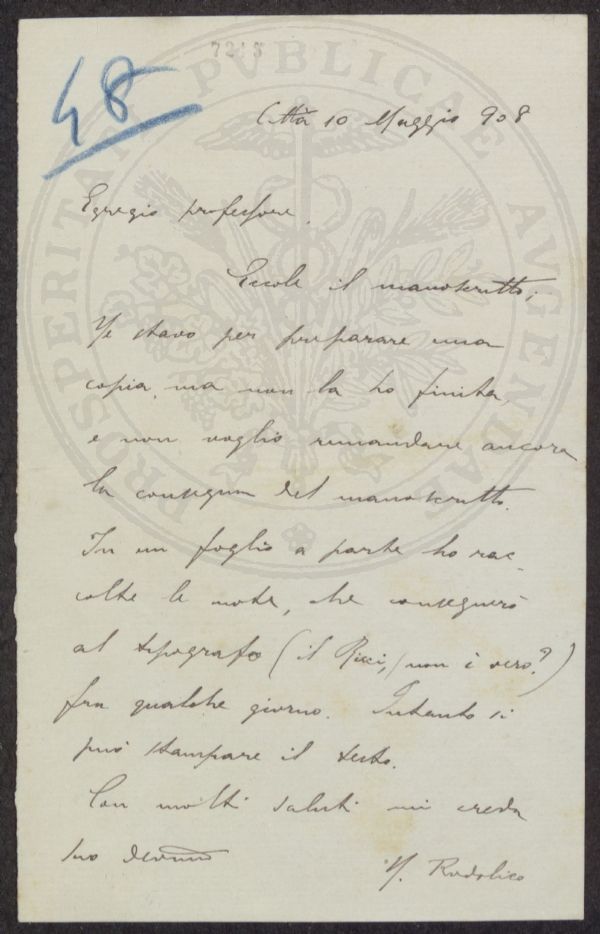 7218
48
Città 10 Maggio 908
Egregio professore.
Eccole il manoscritto;
Ne stavo per preparare una
copia, ma non la ho finita,
e non voglio rimandare ancora
la consegna del manoscritto.
In un foglio a parte ho rac-
colte le note, che consegnerò
al tipografo (il Ricci, non è vero?)
fra qualche giorno. Intanto si
può stampare il testo.
Con molti saluti mi creda
suo devmo
N. Rodolico
PROSPERITATI PVBLICAE AVGENDAE